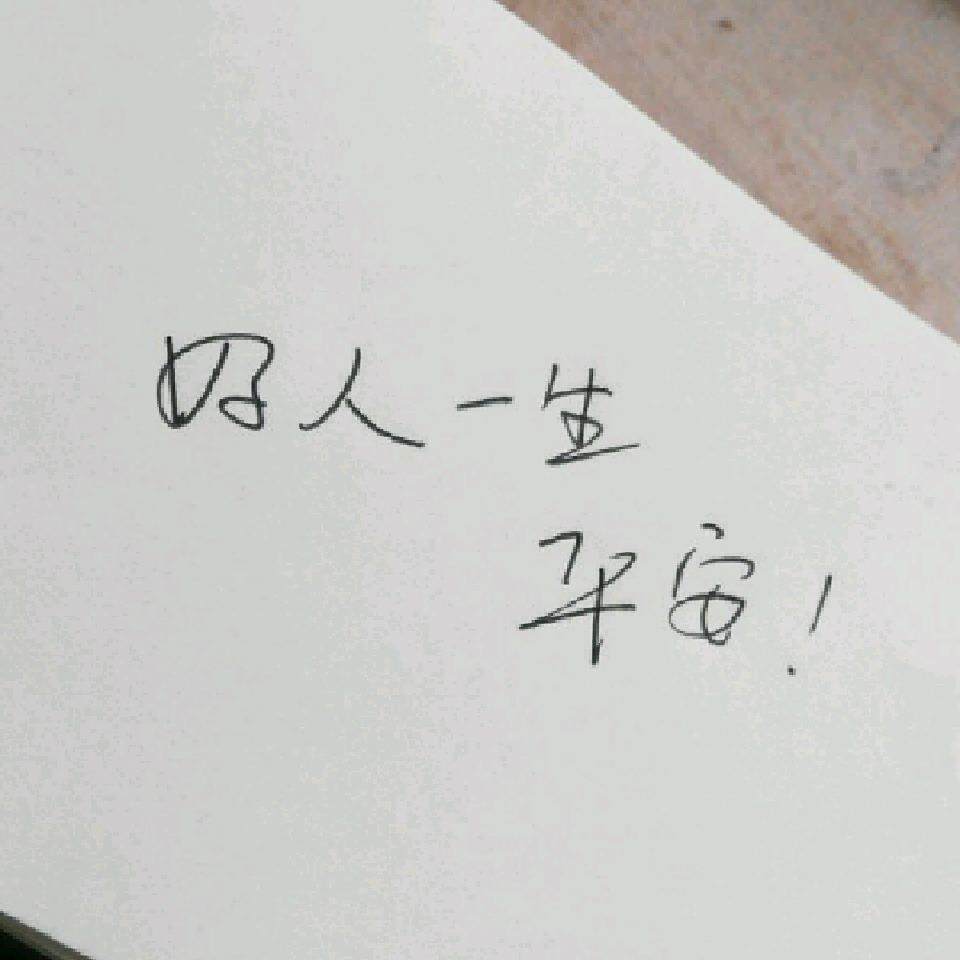 好人一生
平安!